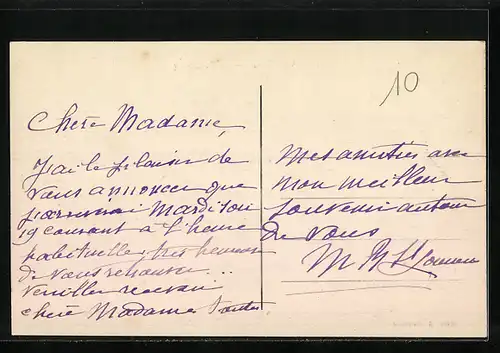 10
Chère Madame,
J'ai le plaisir de
vous annoncer que
j'arriverai Mardi soir
19 courant à l'heure
habituelle, très heureuse
de vous retrouver...
Veuillez recevoir
chère Madame toutes
Mes amitiés avec
mon meilleur
souvenir autour
de vous
M